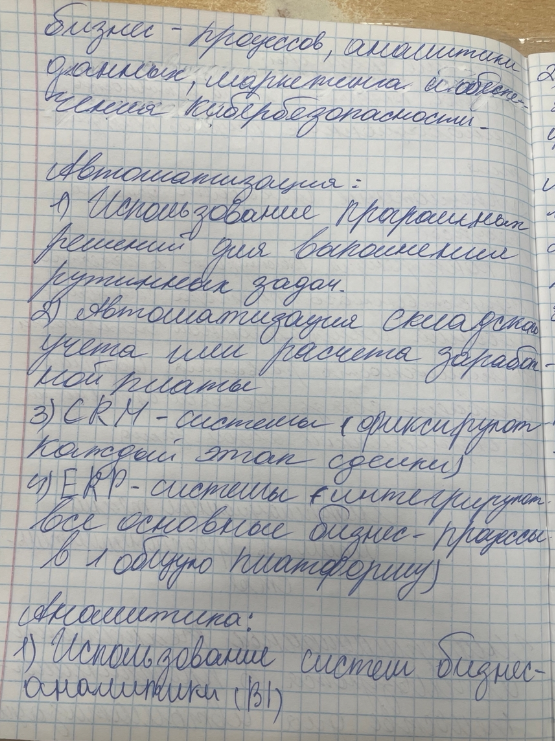 бизнес - процессов, аналитики
данных, маркетинга и обеспе-
чения кибербезопасности.
Автоматизация:
1) Использование програмных
решений для выполнения
рутинных задач.
2) Автоматизация складского
учета или расчета заработ-
ной платы
3) CRM - системы (фиксируют
каждый этап сделки)
4) ERP - системы (интегрируют
все основные бизнес - процессы
в 1 общую платформу)
Аналитика:
1) Использование систем бизнес-
аналитики (BI)